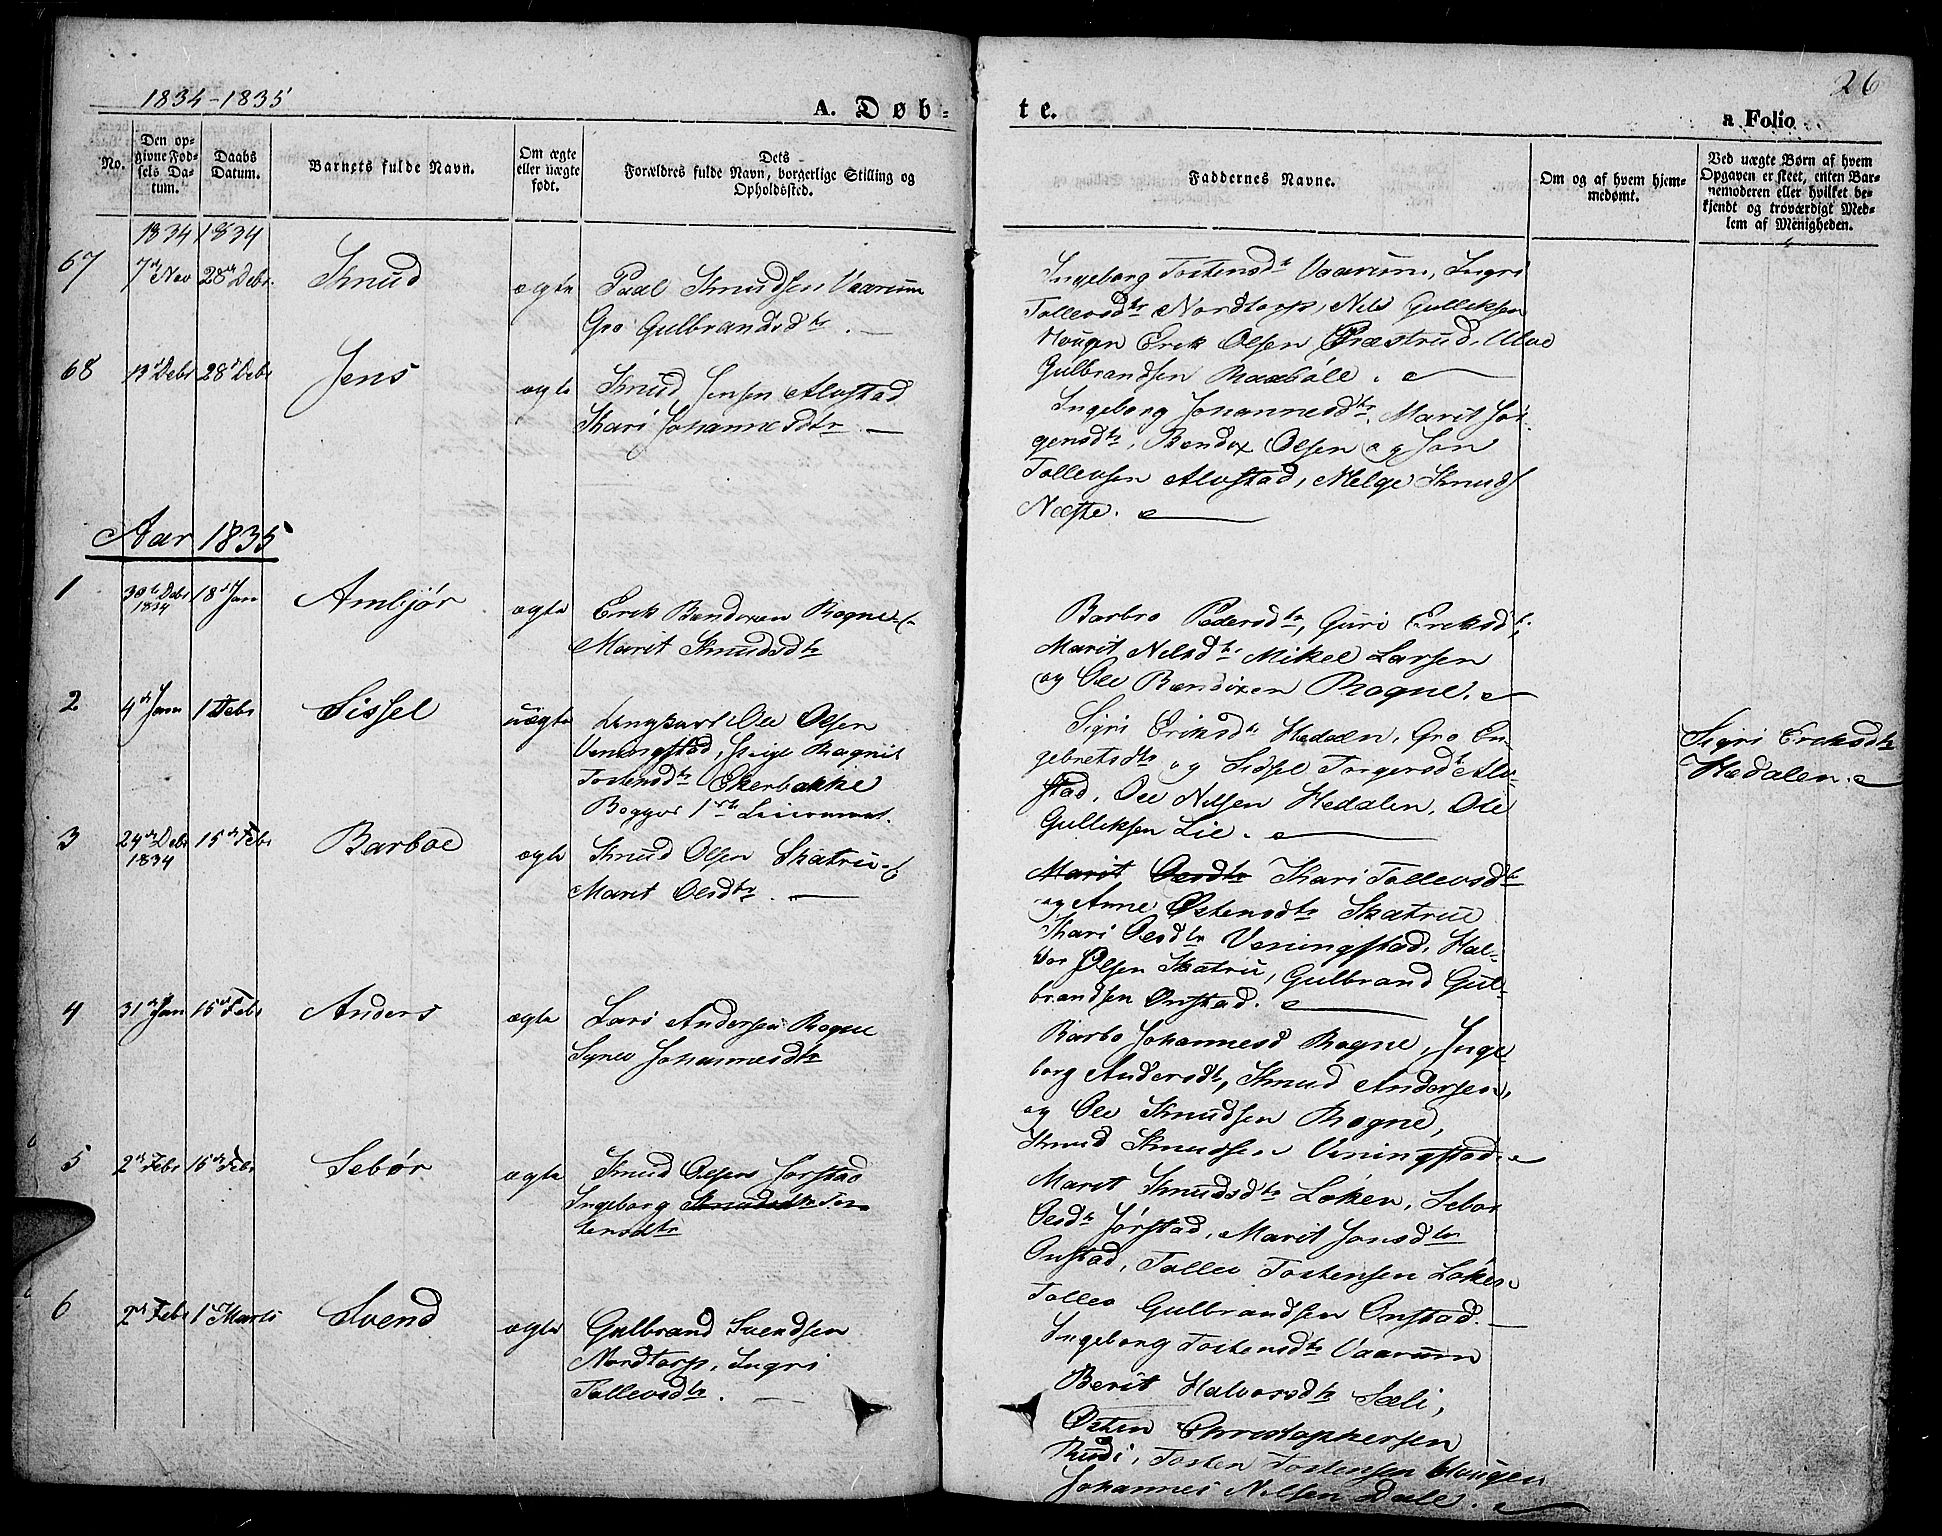 1834-1835
A. Døb-
te.
26
a Folio
No.
Den op-
givne Fød-
sels Da-
tum.
Daabs
Datum.
Barnets fulde Navn.
Om ægte
eller uægte
født.
Dets
Forældres fulde Navn, borgerlige Stilling og
Opholdssted.
Faddernes Navne.
Om og af hvem hjem-
medøbt.
Ved uægte Børn af hvem
Opgaven er skeet, enten Bar-
nemoderen eller hvilket be-
kjendt og troværdigt Med-
lem af Menigheden.
1834 1834
67 7de Nov 28de Debr. Knud ægte
Paal Knudsen Vaarum
Gro Gulbrandsdtr.
Ingeborg Tostensdtr Vaarum, Ingri
Tollevsdtr Nordtorp, Nils Gulliksen
Hougen Erik Olsen Præstrud,
Gulbrandsen
68 Debr 28de Debr Jens ægte
Knud Jensen Alvstad
Kari Johannesdtr.
Ingeborg Johannesdtr. Marit Jør-
gensdtr, Bendix Olsen og Jon
Tollevsen Alvstad, Helge Knuds
Næste.
Aar 1835
1 30te Debr 1834 18de Jan Ambjør ægte
Erik Bendixen Rogne
Marit Knudsdtr
Barbro Pedersdtr, Guri Eriksdtr,
Marit Nilsdtr Mikel Larsen
og Ole Bendixen Rogne.
2 4de Janu 1 Febr Sissel uægte
Ungkarl Ole Olsen
Veningstad, Pige Ragnil
Tostensdtr Ekerbakke
Begges 1ste Leiermaal.
Sigri Eriksdtr Hedalen, Gro En-
gebretsdtr og Sidsel Torgersdtr Alv-
stad, Ole Nilsen Hedalen, Ole
Gulliksen Lie.
Sigri Eriksdtr
Hedalen.
3 24de Debr 1834 15de Febr Barboe ægte
Knud Olsen Skatru
Marit Olsdtr.
Marit Olesdtr Kari Tollevsdtr
og Anne Østensdtr Skatrue
Kari Olesdtr Veningstad, Hal-
vor Olsen Skatru, Gulbrand Gul-
brandsen Onstad.
4 31de Jan 15de Febr Anders ægte
Lars Andersen Rogne
Synev Johannesdtr
Barbo Johannesd Rogne, Inge-
borg Andersdtr, Knud Andersen,
og Ole Knudsen Rogne,
Knud Knudsen Veningstad.
5 2de Febr 15de Febr Sebør ægte
Knud Olsen Jørstad
Ingeborg Knudsdtr Tos-
tensdtr
Marit Knudsdtr Løken, Sebør
Olesdtr Jørstad, Marit Jonsdtr
Onstad, Tollev Tostensen Løken
Tollev Gulbrandsen Onstad.
6 2de Febr 1ste Marts Svend ægte
Gulbrand Svendsen
Nordtorp, Ingri
Tollevsdtr.
Ingeborg Tostensdtr Vaarum
Berit Halvorsdtr Sæli,
Østen Christophersen
Rudi, Tosten Tostensen Hougen
Johannes Nilsen Dale.